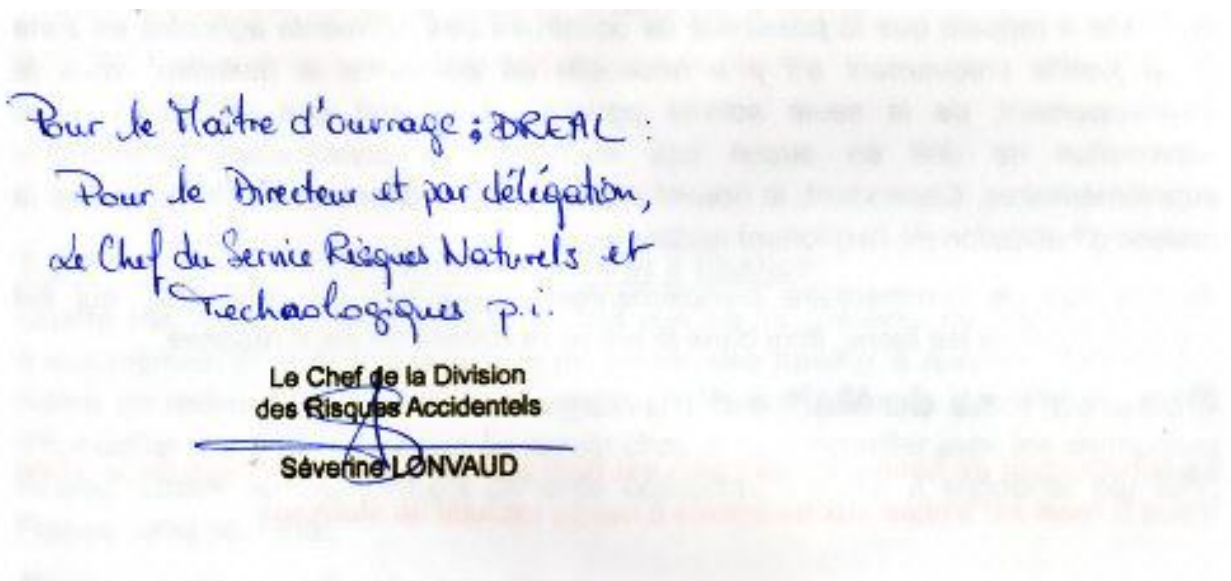 Pour le Maître d'ouvrage : DREAL.
Pour le Directeur et par délégation,
Le Chef du Service Risques Naturels et
Technologiques p.i.
Le Chef de la Division
des Risques Accidentels
Séverine LONVAUD